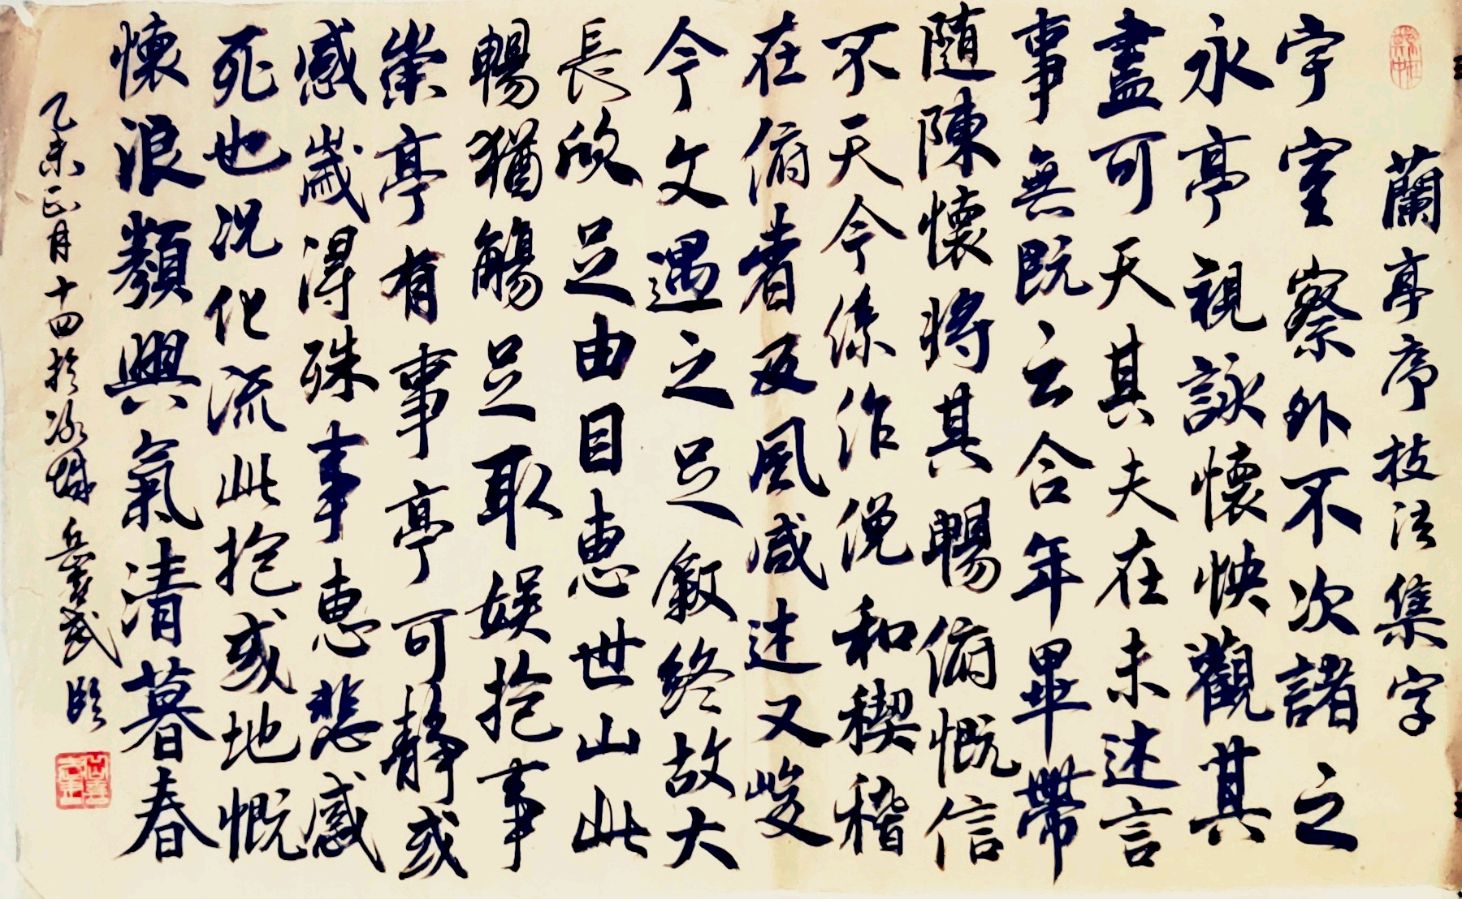 蘭亭序技法集字
宇室察外不次諸之
永亭視詠懷怏觀其
盡可天其夫在未述言
事無既云合年畢帶
隨陳懷將其暢俯慨信
不天今係作俛和稧稽
在俯者及風咸述又峻
今文遇之足叙終故大
長欣足由目惠世山此
暢猶觴足取娛抱事
崇亭有事亭可靜或
感歲得殊事惠悲感
死也況化流此抱或地慨
懷浪類興氣清暮春
乙未正月十四於城岳武臨